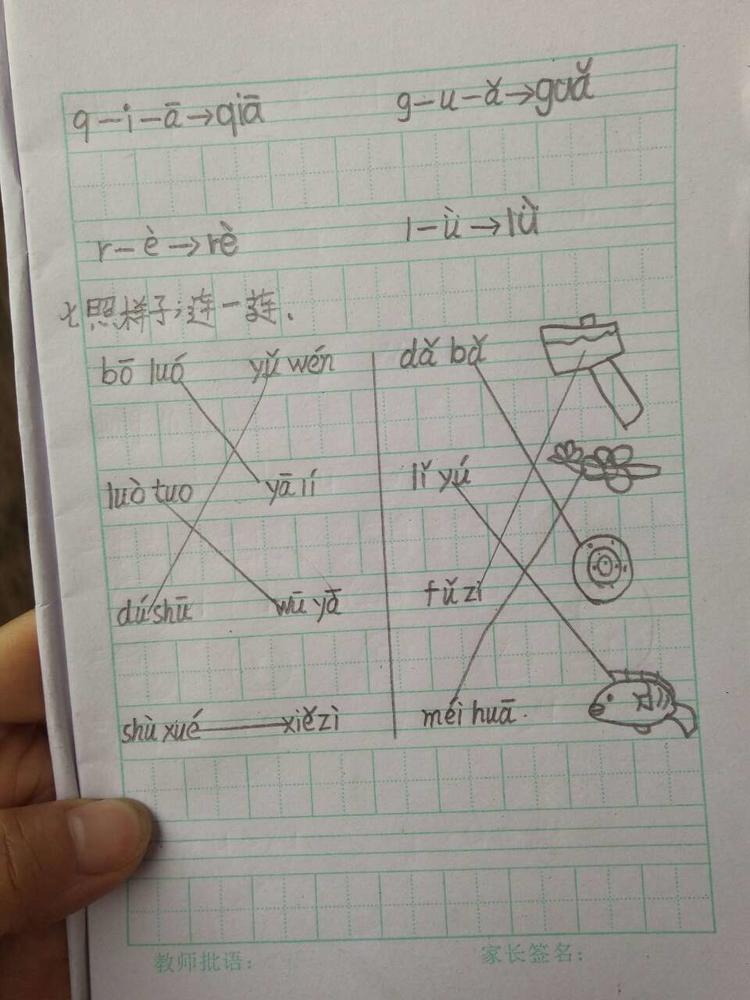 q-i-ā→qiā g-u-ǎ→guǎ
r-è→rè l-ǜ→lǜ
七照样子,连一连.
bō luó yǔ wén dǎ bǎ
luò tuo yā lí lǐ yú
dú shū wū yā fǔ zi
shù xué xiě zì méi huā.
教师批语: 家长签名: